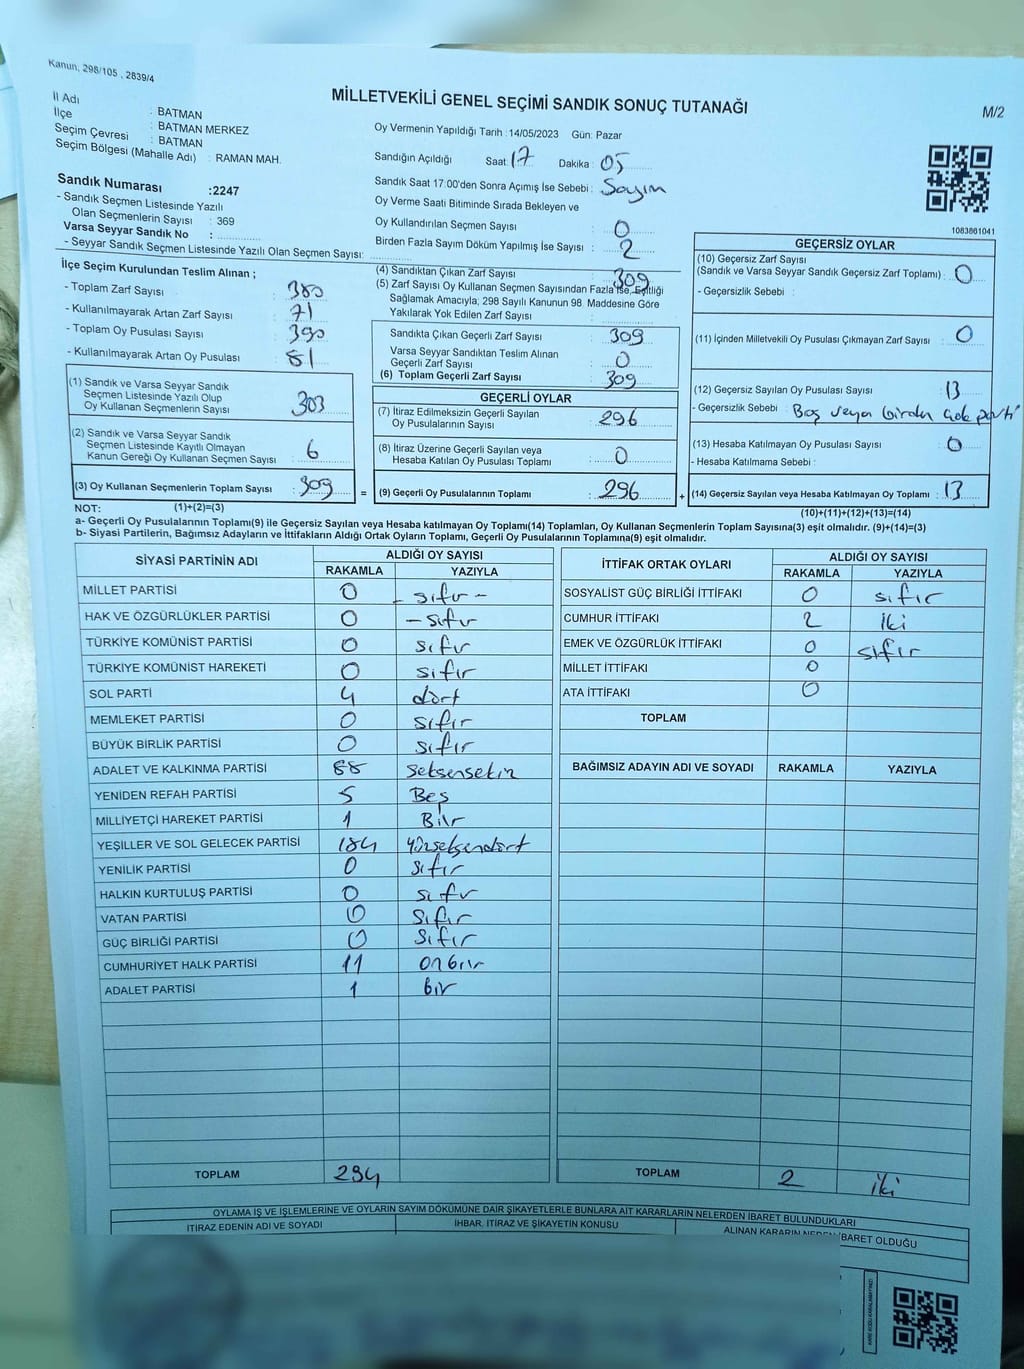 Kanun, 298/105 , 2839/4
MİLLETVEKİLİ GENEL SEÇİMİ SANDIK SONUÇ TUTANAĞI
M/2
İl Adı : BATMAN
İlçe : BATMAN MERKEZ
Seçim Çevresi : BATMAN
Seçim Bölgesi (Mahalle Adı) : RAMAN MAH.
Sandık Numarası :2247
- Sandık Seçmen Listesinde Yazılı
Olan Seçmenlerin Sayısı : 369
Varsa Seyyar Sandık No :
- Seyyar Sandık Seçmen Listesinde Yazılı Olan Seçmen Sayısı:
Oy Vermenin Yapıldığı Tarih : 14/05/2023 Gün: Pazar
Sandığın Açıldığı Saat: 17 Dakika : 05
Sandık Saat 17:00'den Sonra Açımış İse Sebebi : Sayım
Oy Verme Saati Bitiminde Sırada Bekleyen ve
Oy Kullandırılan Seçmen Sayısı : 0
Birden Fazla Sayım Döküm Yapılmış İse Sayısı : 2
1083861041
İlçe Seçim Kurulundan Teslim Alınan ;
- Toplam Zarf Sayısı : 380
- Kullanılmayarak Artan Zarf Sayısı : 71
- Toplam Oy Pusulası Sayısı : 390
- Kullanılmayarak Artan Oy Pusulası : 81
(1) Sandık ve Varsa Seyyar Sandık
Seçmen Listesinde Yazılı Olup
Oy Kullanan Seçmenlerin Sayısı : 303
(2) Sandık ve Varsa Seyyar Sandık
Seçmen Listesinde Kayıtlı Olmayan
Kanun Gereği Oy Kullanan Seçmen Sayısı : 6
(3) Oy Kullanan Seçmenlerin Toplam Sayısı : 309
(4) Sandıktan Çıkan Zarf Sayısı : 309
(5) Zarf Sayısı Oy Kullanan Seçmen Sayısından Fazla İse, Eşitliği
Sağlamak Amacıyla; 298 Sayılı Kanunun 98. Maddesine Göre
Yakılarak Yok Edilen Zarf Sayısı :
Sandıkta Çıkan Geçerli Zarf Sayısı : 309
Varsa Seyyar Sandıktan Teslim Alınan
Geçerli Zarf Sayısı : 0
(6) Toplam Geçerli Zarf Sayısı : 309
GEÇERLİ OYLAR
(7) İtiraz Edilmeksizin Geçerli Sayılan
Oy Pusulalarının Sayısı : 296
(8) İtiraz Üzerine Geçerli Sayılan veya
Hesaba Katılan Oy Pusulası Toplamı : 0
= (9) Geçerli Oy Pusulalarının Toplamı : 296
GEÇERSİZ OYLAR
(10) Geçersiz Zarf Sayısı
(Sandık ve Varsa Seyyar Sandık Geçersiz Zarf Toplamı) : 0
- Geçersizlik Sebebi :
(11) İçinden Milletvekili Oy Pusulası Çıkmayan Zarf Sayısı : 0
(12) Geçersiz Sayılan Oy Pusulası Sayısı : 13
- Geçersizlik Sebebi : Boş veya birden çok parti
(13) Hesaba Katılmayan Oy Pusulası Sayısı : 0
- Hesaba Katılmama Sebebi :
+ (14) Geçersiz Sayılan veya Hesaba Katılmayan Oy Toplamı : 13
NOT: (1)+(2)=(3)
(10)+(11)+(12)+(13)=(14)
a- Geçerli Oy Pusulalarının Toplamı(9) ile Geçersiz Sayılan veya Hesaba katılmayan Oy Toplamı(14) Toplamları, Oy Kullanan Seçmenlerin Toplam Sayısına(3) eşit olmalıdır. (9)+(14)=(3)
b- Siyasi Partilerin, Bağımsız Adayların ve İttifakların Aldığı Ortak Oyların Toplamı, Geçerli Oy Pusulalarının Toplamına(9) eşit olmalıdır.
SİYASİ PARTİNİN ADI ALDIĞI OY SAYISI
RAKAMLA YAZIYLA
MİLLET PARTİSİ 0 - sıfır -
HAK VE ÖZGÜRLÜKLER PARTİSİ 0 - sıfır
TÜRKİYE KOMÜNİST PARTİSİ 0 sıfır
TÜRKİYE KOMÜNİST HAREKETİ 0 sıfır
SOL PARTİ 4 dört
MEMLEKET PARTİSİ 0 sıfır
BÜYÜK BİRLİK PARTİSİ 0 sıfır
ADALET VE KALKINMA PARTİSİ 88 seksensekiz
YENİDEN REFAH PARTİSİ 5 Beş
MİLLİYETÇİ HAREKET PARTİSİ 1 Bir
YEŞİLLER VE SOL GELECEK PARTİSİ 184 yüzseksendört
YENİLİK PARTİSİ 0 sıfır
HALKIN KURTULUŞ PARTİSİ 0 sıfır
VATAN PARTİSİ 0 sıfır
GÜÇ BİRLİĞİ PARTİSİ 0 sıfır
CUMHURİYET HALK PARTİSİ 11 onbir
ADALET PARTİSİ 1 bir
TOPLAM 294
İTTİFAK ORTAK OYLARI ALDIĞI OY SAYISI
RAKAMLA YAZIYLA
SOSYALİST GÜÇ BİRLİĞİ İTTİFAKI 0 sıfır
CUMHUR İTTİFAKI 2 iki
EMEK VE ÖZGÜRLÜK İTTİFAKI 0 sıfır
MİLLET İTTİFAKI 0
ATA İTTİFAKI 0
TOPLAM
BAĞIMSIZ ADAYIN ADI VE SOYADI RAKAMLA YAZIYLA
TOPLAM 2 iki
OYLAMA İŞ VE İŞLEMLERİNE VE OYLARIN SAYIM DÖKÜMÜNE DAİR ŞİKAYETLERLE BUNLARA AİT KARARLARIN NELERDEN İBARET BULUNDUKLARI
İTİRAZ EDENİN ADI VE SOYADI İHBAR, İTİRAZ VE ŞİKAYETİN KONUSU ALINAN KARARIN NEDEN İBARET OLDUĞU